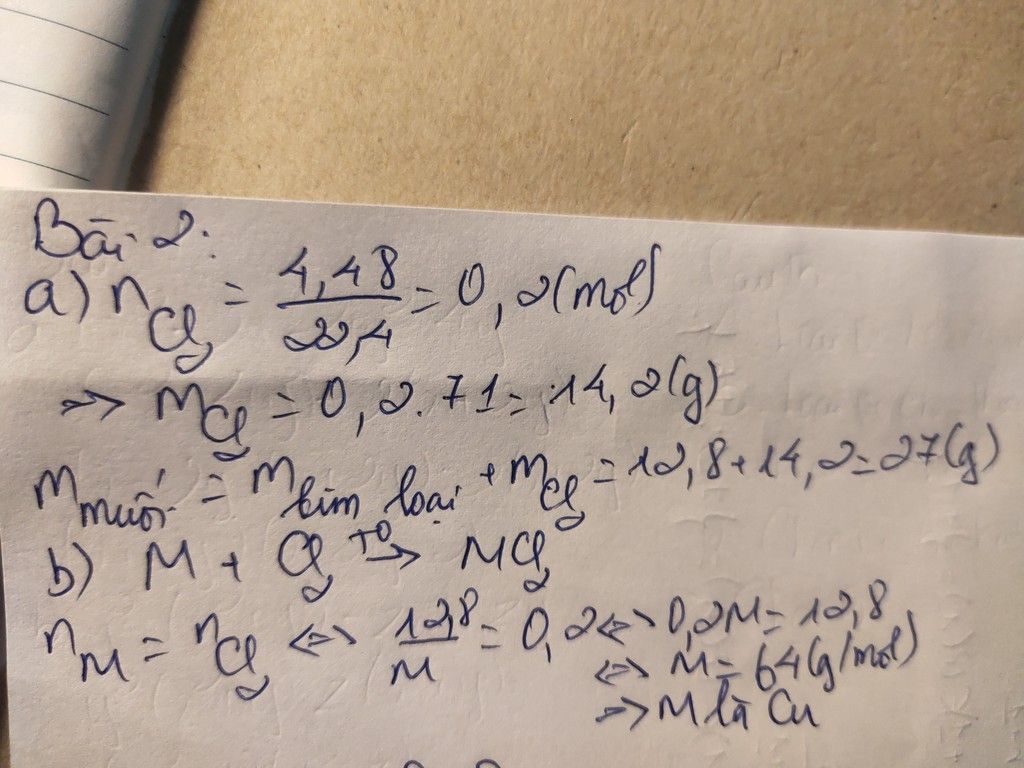 Bài 2:
a) n_{Cl_2} = \frac{4,48}{22,4} = 0,2 (mol)
=> m_{Cl_2} = 0,2.71 = 14,2 (g)
m_{muối} = m_{kim loại} + m_{Cl_2} = 12,8 + 14,2 = 27 (g)
b) M + Cl_2 \xrightarrow{t^0} MCl_2
n_M = n_{Cl_2} <=> \frac{12,8}{M} = 0,2 <=> 0,2M = 12,8
<=> M = 64 (g/mol)
=> M là Cu